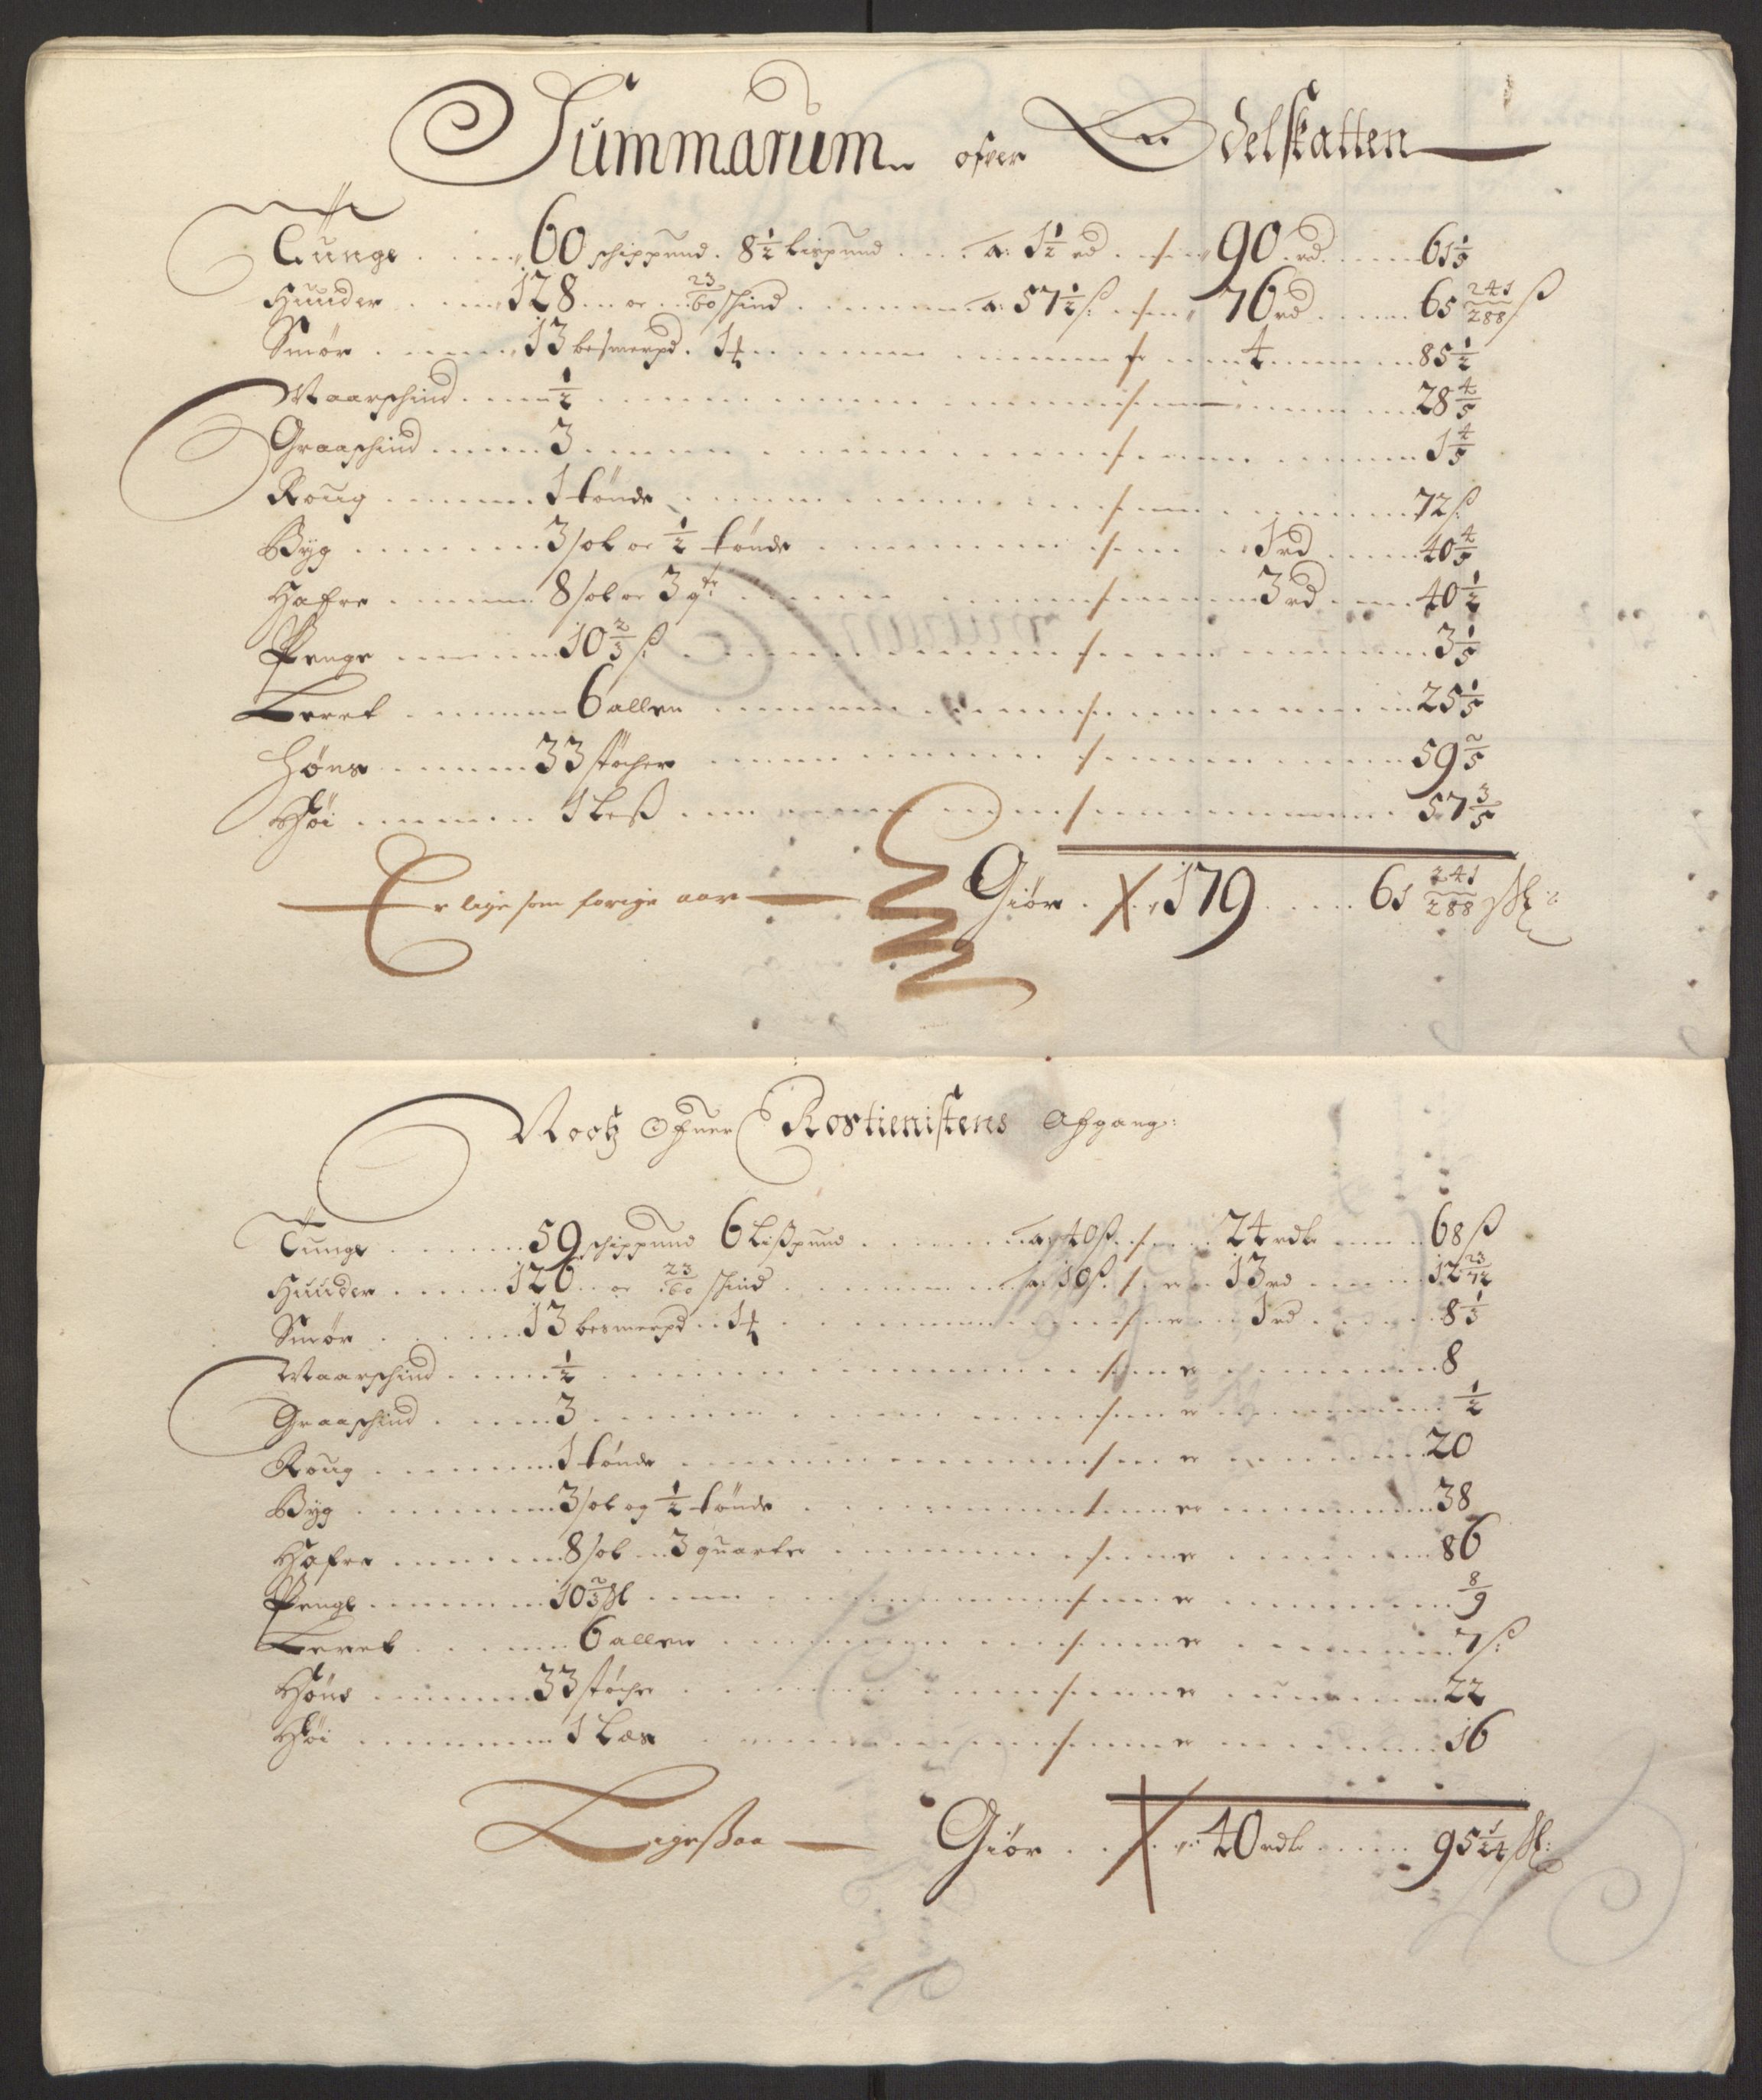 Summarum ofver Odelskatten
Tunge 60 schippund. 8½ lispund a: 1½ rd 90 rd 61⅕
Huuder 128 oc 23/60 schind a: 57½ ß: 76 rd 65 241/288 ß
Smör 13 besmerpd. 1¼ 4 85½
Maarschind ½ 28⅘
Graaschind 3 1⅘
Roug 1 tönde 72 ß:
Byg 3 sol oc ½ tönde 1 rd 40⅘
Hafre 8 sol oc 3 qtr 3 rd 40½
Penge 10⅔ ß: 3⅕
Lerret 6 allen 25⅕
Höns 33 støcher 59⅖
Höi 1 Less 57⅗
Er lige som forige aar Giör 179 61 241/288 sk:
Nock Ofver Rostienistens Afgang:
Tunge 59 schippund 6 Lißpund a: 40 ß 24 rdr 68 ß
Huuder 126 oc 23/60 schind a: 10 ß 13 rd 12 23/72
Smör 13 besmerpd 1¼ 1 rd 8⅓
Maarschind ½ 8
Graaschind 3 ½
Roug 1 tönde 20
Byg 3 sol og ½ tönde 38
Hafre 8 sol 3 quarter 86
Penge 10⅔ sk 8/9
Lerret 6 allen 7 ß:
Höns 33 støcher 22
Höi 1 Læs 16
Ligeßaa Giör 40 rdr 95 1/24 sk: